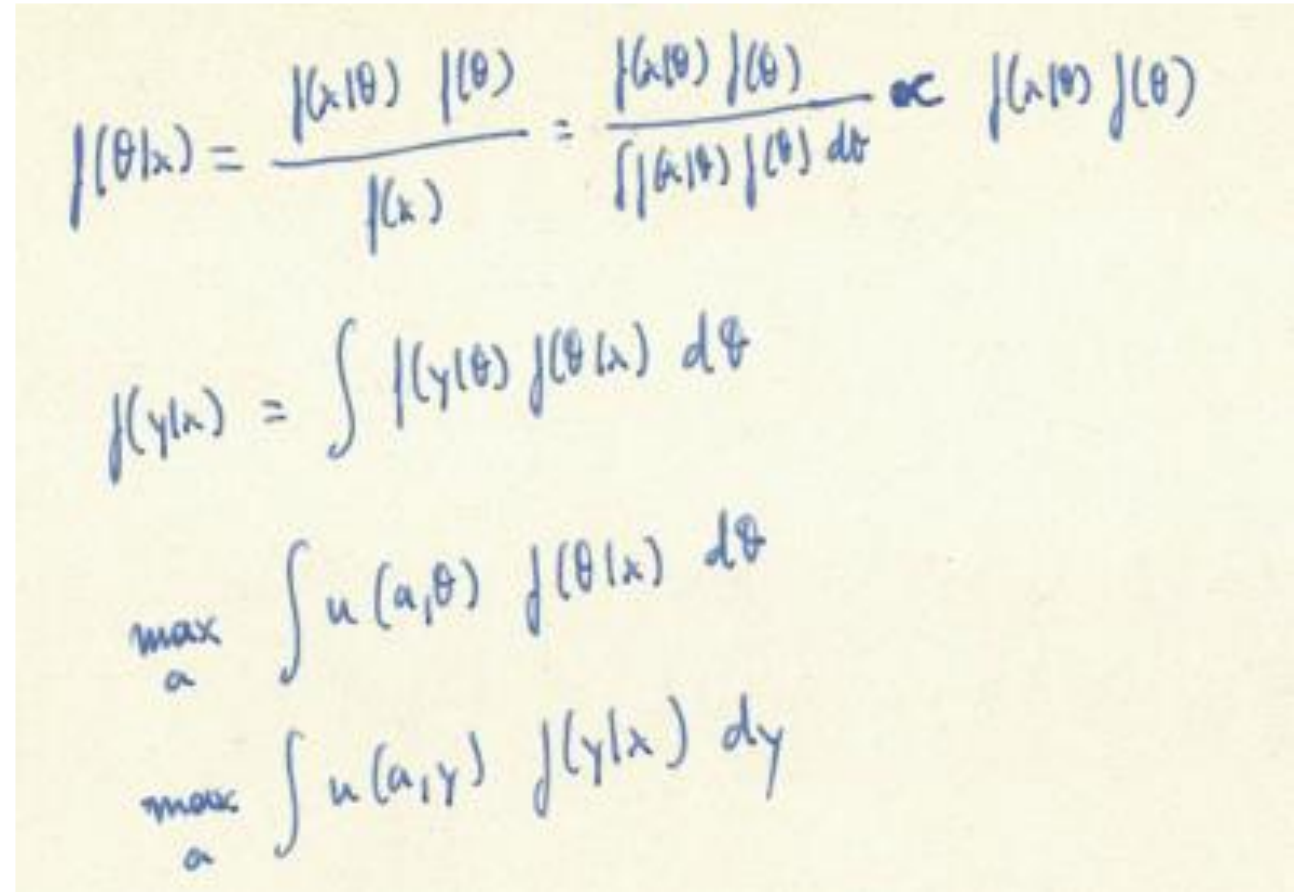 f(θ|x) = f(x|θ) f(θ) / f(x) = f(x|θ) f(θ) / ∫ f(x|θ) f(θ) dθ ∝ f(x|θ) f(θ)
f(y|x) = ∫ f(y|θ) f(θ|x) dθ
max a ∫ u(a,θ) f(θ|x) dθ
max a ∫ u(a,y) f(y|x) dy